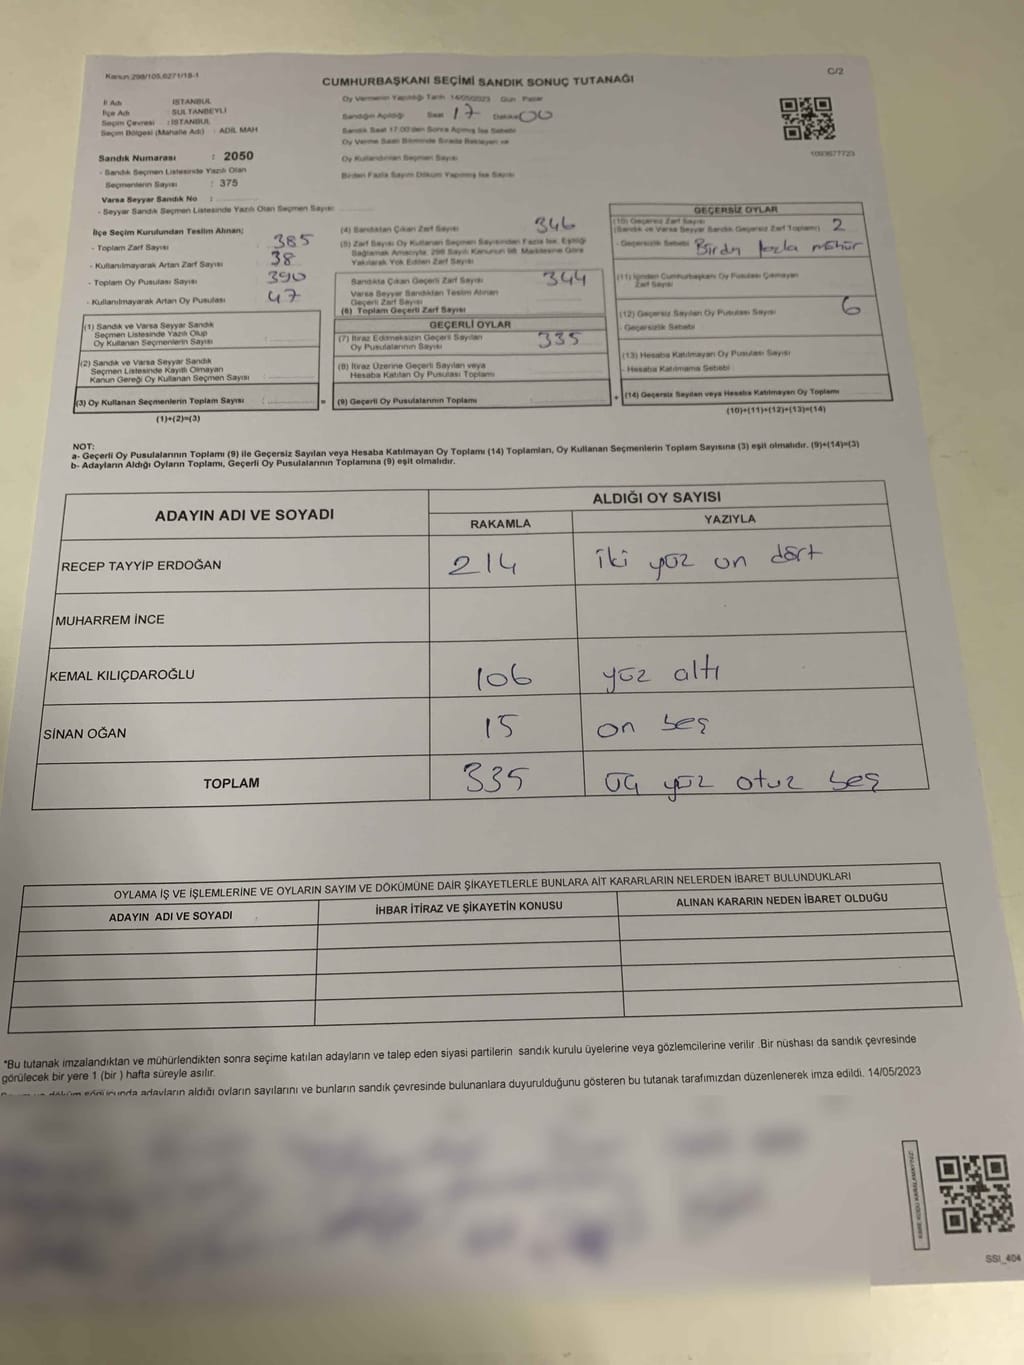 Kanun:298/105,6271/18-1
C/2
CUMHURBAŞKANI SEÇİMİ SANDIK SONUÇ TUTANAĞI
İl Adı : İSTANBUL
İlçe Adı : SULTANBEYLİ
Seçim Çevresi : İSTANBUL
Seçim Bölgesi (Mahalle Adı) : ADİL MAH
Sandık Numarası : 2050
- Sandık Seçmen Listesinde Yazılı Olan
Seçmenlerin Sayısı : 375
Varsa Seyyar Sandık No :
- Seyyar Sandık Seçmen Listesinde Yazılı Olan Seçmen Sayısı:
Oy Vermenin Yapıldığı Tarih 14/05/2023 Gün Pazar
Sandığın Açıldığı Saat 17 Dakika 00
Sandık Saat 17:00'den Sonra Açılmış İse Sebebi
Oy Verme Saati Bitiminde Sırada Bekleyen ve
Oy Kullandırılan Seçmen Sayısı
Birden Fazla Sayım Döküm Yapılmış İse Sayısı
1093677723
İlçe Seçim Kurulundan Teslim Alınan;
- Toplam Zarf Sayısı 385
- Kullanılmayarak Artan Zarf Sayısı 38
- Toplam Oy Pusulası Sayısı 390
- Kullanılmayarak Artan Oy Pusulası 47
(1) Sandık ve Varsa Seyyar Sandık
Seçmen Listesinde Yazılı Olup
Oy Kullanan Seçmenlerin Sayısı :
(2) Sandık ve Varsa Seyyar Sandık
Seçmen Listesinde Kayıtlı Olmayan
Kanun Gereği Oy Kullanan Seçmen Sayısı :
(3) Oy Kullanan Seçmenlerin Toplam Sayısı : =
(1)+(2)=(3)
(4) Sandıktan Çıkan Zarf Sayısı 346
(5) Zarf Sayısı Oy Kullanan Seçmen Sayısından Fazla İse, Eşitliği
Sağlamak Amacıyla, 298 Sayılı Kanunun 98. Maddesine Göre
Yakılarak Yok Edilen Zarf Sayısı
Sandıkta Çıkan Geçerli Zarf Sayısı 344
Varsa Seyyar Sandıktan Teslim Alınan
Geçerli Zarf Sayısı
(6) Toplam Geçerli Zarf Sayısı
GEÇERLİ OYLAR
(7) İtiraz Edilmeksizin Geçerli Sayılan
Oy Pusulalarının Sayısı 335
(8) İtiraz Üzerine Geçerli Sayılan veya
Hesaba Katılan Oy Pusulası Toplamı
(9) Geçerli Oy Pusulalarının Toplamı +
GEÇERSİZ OYLAR
(10) Geçersiz Zarf Sayısı
(Sandık ve Varsa Seyyar Sandık Geçersiz Zarf Toplamı) 2
- Geçersizlik Sebebi Birden fazla mühür
(11) İçinden Cumhurbaşkanı Oy Pusulası Çıkmayan
Zarf Sayısı
(12) Geçersiz Sayılan Oy Pusulası Sayısı 6
- Geçersizlik Sebebi
(13) Hesaba Katılmayan Oy Pusulası Sayısı
- Hesaba Katılmama Sebebi
(14) Geçersiz Sayılan veya Hesaba Katılmayan Oy Toplamı
(10)+(11)+(12)+(13)=(14)
NOT:
a- Geçerli Oy Pusulalarının Toplamı (9) ile Geçersiz Sayılan veya Hesaba Katılmayan Oy Toplamı (14) Toplamları, Oy Kullanan Seçmenlerin Toplam Sayısına (3) eşit olmalıdır. (9)+(14)=(3)
b- Adayların Aldığı Oyların Toplamı, Geçerli Oy Pusulalarının Toplamına (9) eşit olmalıdır.
ADAYIN ADI VE SOYADI
ALDIĞI OY SAYISI
RAKAMLA YAZIYLA
RECEP TAYYİP ERDOĞAN 214 iki yüz on dört
MUHARREM İNCE
KEMAL KILIÇDAROĞLU 106 yüz altı
SİNAN OĞAN 15 on beş
TOPLAM 335 üç yüz otuz beş
OYLAMA İŞ VE İŞLEMLERİNE VE OYLARIN SAYIM VE DÖKÜMÜNE DAİR ŞİKAYETLERLE BUNLARA AİT KARARLARIN NELERDEN İBARET BULUNDUKLARI
ADAYIN ADI VE SOYADI İHBAR İTİRAZ VE ŞİKAYETİN KONUSU ALINAN KARARIN NEDEN İBARET OLDUĞU
*Bu tutanak imzalandıktan ve mühürlendikten sonra seçime katılan adayların ve talep eden siyasi partilerin sandık kurulu üyelerine veya gözlemcilerine verilir .Bir nüshası da sandık çevresinde
görülecek bir yere 1 (bir ) hafta süreyle asılır.
döküm sonucunda adayların aldığı oyların sayılarını ve bunların sandık çevresinde bulunanlara duyurulduğunu gösteren bu tutanak tarafımızdan düzenlenerek imza edildi. 14/05/2023
KARE KODU KARALAMAYINIZ
SSI_404